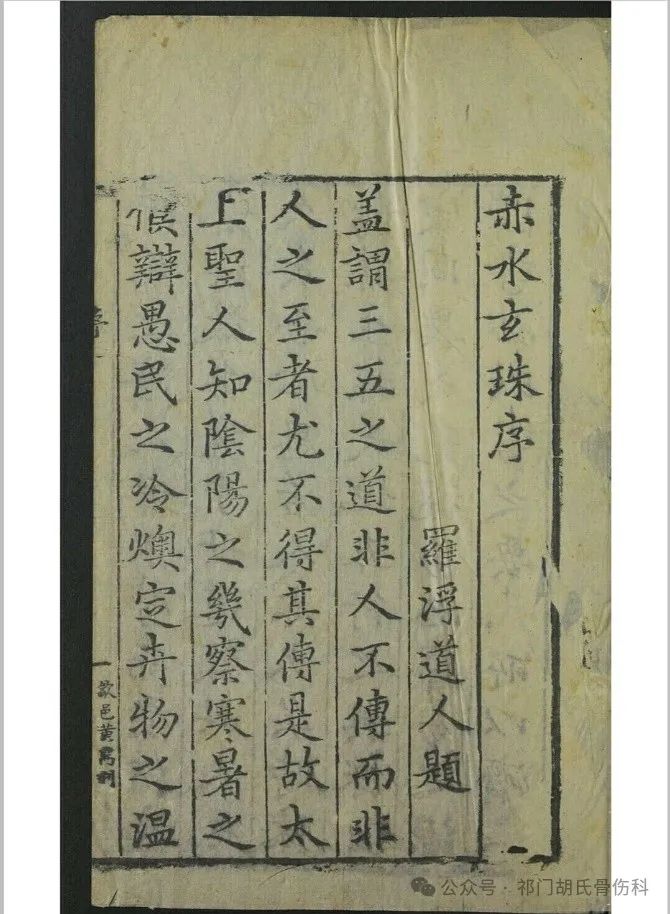 赤水玄珠序
羅浮道人題
蓋謂三五之道非人不傳而非
人之至者尤不得其傳是故太
上聖人知陰陽之幾察寒暑之
候辯愚民之冷燠定卉物之温
序
一
歙邑黄鼎刻
公众号·祁门胡氏骨伤科